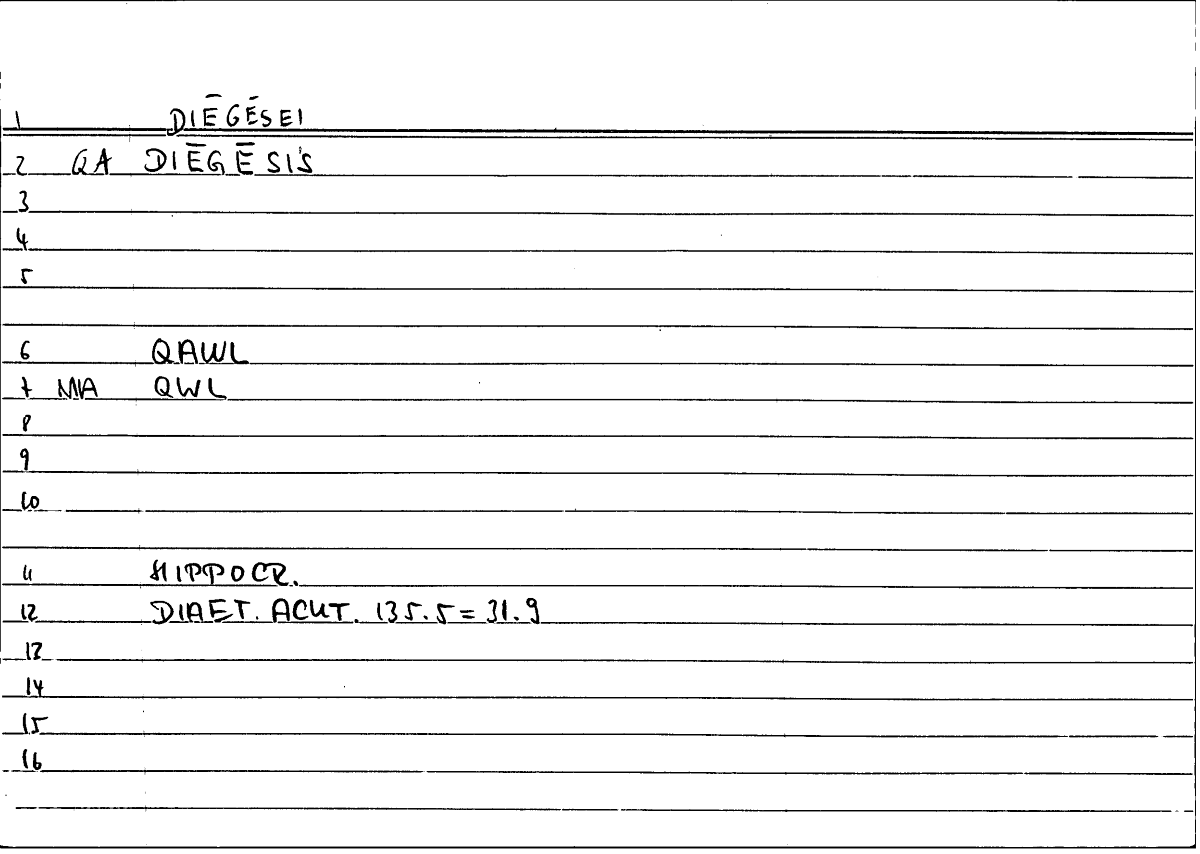 1 DIĒGĒSEI
2 QA DIĒGĒSIS
3
4
5
6 QAWL
7 MA QWL
8
9
10
11 HIPPOCR.
12 DIAET. ACUT. 135.5 = 31.9
13
14
15
16